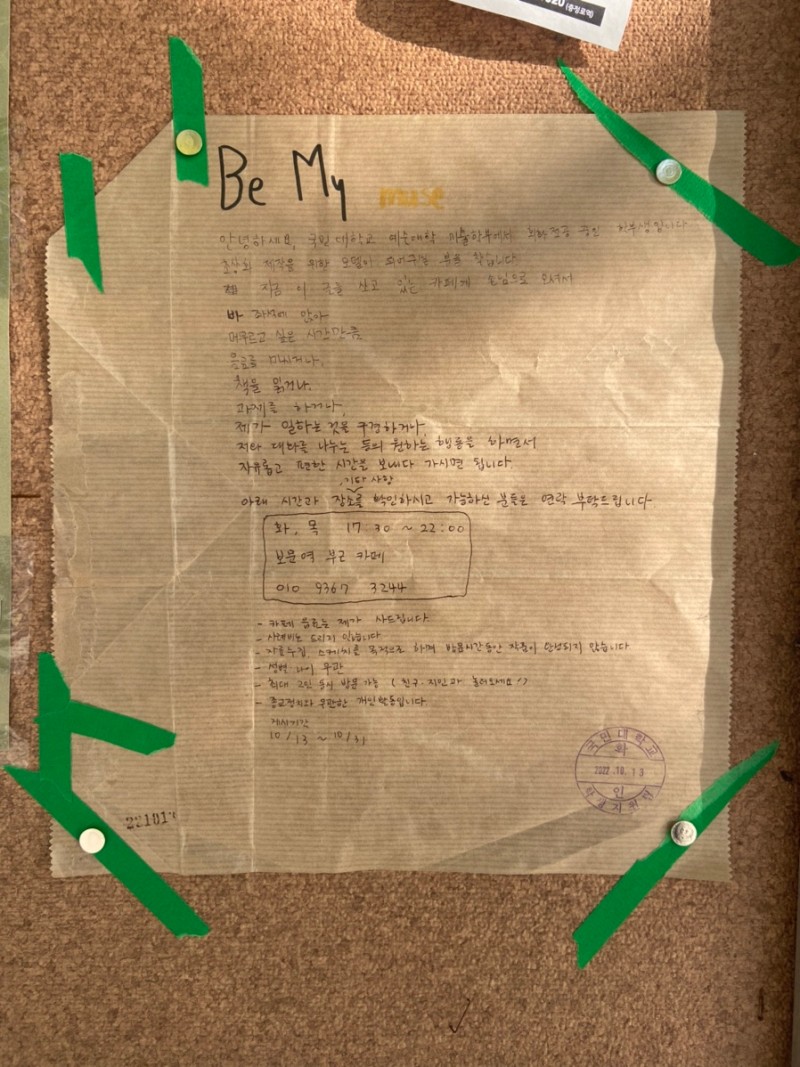 (충정로역)
Be My muse
안녕하세요, 국민대학교 예술대학 미술학부에서 회화전공 중인 학부생입니다
초상화 제작을 위한 모델이 되어주는 분을 찾습니다.
지금 이 글을 쓰고 있는 카페에 손님으로 오셔서
바 좌석에 앉아
머무르고 싶은 시간만큼
음료를 마시거나,
책을 읽거나,
과제를 하거나,
제가 일하는 것을 구경하거나
저와 대화를 나누는 등의 원하는 행동을 하면서
자유롭고 편한 시간을 보내다 가시면 됩니다.
아래 시간과 장소를, 기타 사항 확인하시고 가능하신 분들은 연락 부탁드립니다
화, 목 17:30 ~ 22:00
보문역 부근 카페
010 9367 3244
- 카페 음료는 제가 사드립니다
- 사례비는 드리지 않습니다
- 자료수집 스케치를 목적으로 하며 방문시간동안 작품이 완성되지 않습니다
- 성별 나이 무관
- 최대 2인 동시 방문 가능 ( 친구·지인과 놀러오세요!)
- 종교정치와 무관한 개인활동입니다
게시기간
10/13 ~ 10/31
국민대학교
확
2022.10.13
인
221013